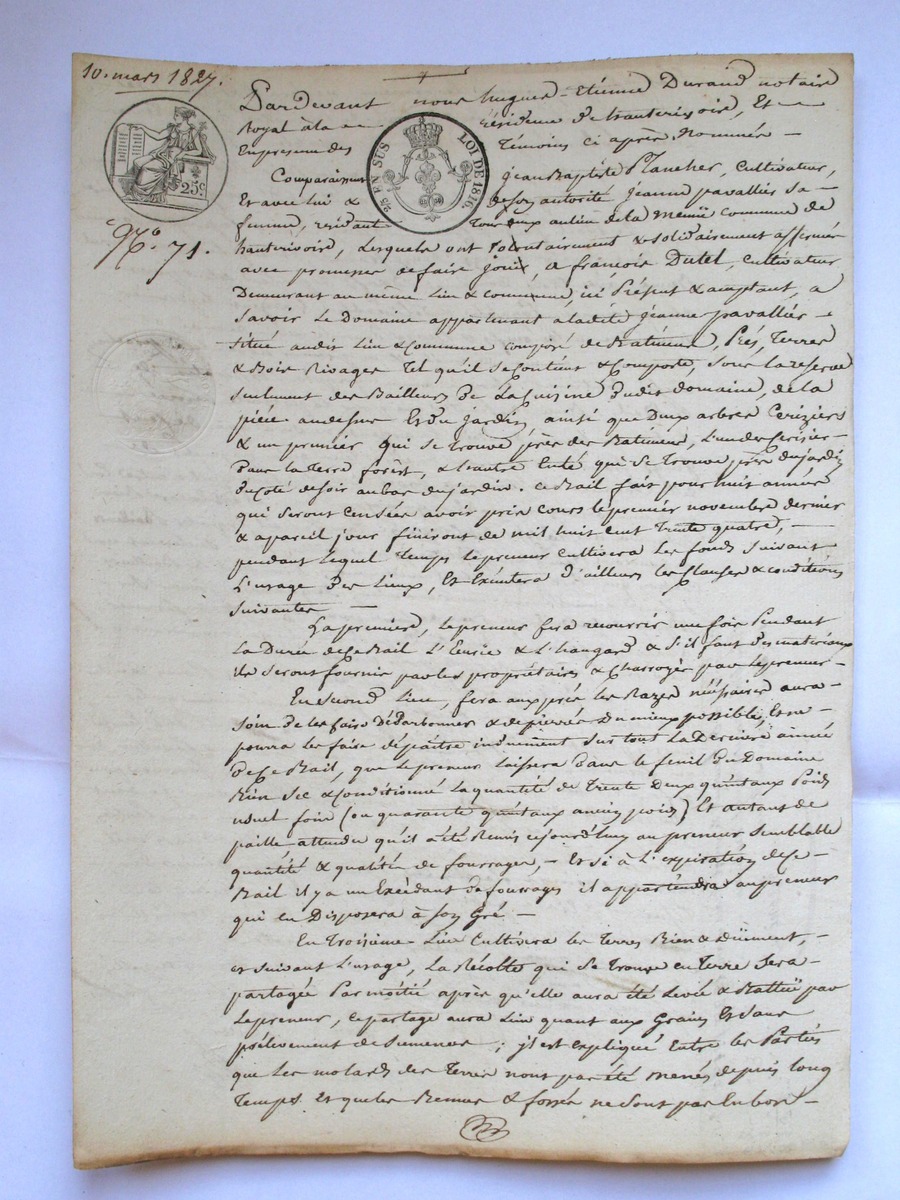 10. mars 1827.
Pardevant nous hugues-Etienne Durand notaire
Royal à la Résidence de hauterivoire, Et
En presence des Témoins ci après Nommés
25 EN SUS LOI DE 1816.
25c
Comparaissent jean Baptiste Plancher, cultivateur,
Et avec lui & de son autorité jeanne pavalliés sa
femme, residant Tous deux au lieu de la même commune de
No 71.
hauterivoire, Lesquels ont volontairement & solidairement affermé
avec promesse de faire jouir, a françois Dutel, cultivateur
Demeurant au même lieu & commune, ici Présent & acceptant, a
Savoir Le Domaine appartenant à ladite jeanne pavalliés
Situé audit Lieu & Commune composé de Batiment, Prés, Terres
& Bois Rivages Tel qu'il se Contient & Comporte, sous la reserve
seulement des Bailleurs De La Cuisine Dudit domaine, de la
pièce audessus Et du jardin, ainsi que Deux arbres Cerisiers
& un premier qui se trouve près des Batiment, L'un des Cerisiers
Dans la Terre & l'autre Enté qui se Trouve près du jardin
Du coté de soir au bas du jardin. Ce Bail fait pour huit années
qui seront Censées avoir pris cours le premier novembre dernier
& a pareil jour finiront de mil huit cent trente quatre,
pendant lequel Temps le preneur Cultivera Les fonds Suivant
L'usage Des Lieux, Et Exécutera d'ailleurs les Clauses & conditions
Suivantes
La premiere, le preneur fera recouvrir une fois Pendant
La Durée de ce Bail L'Ecurie & L'hangard & s'il faut Des materiaux
ils Seront fournis par les propriétaires & Charroyés par le preneur
En Second Lieu, fera aux prés les Razes nécéssaires aura
soin de les faire & du mieux possible, Et ne
pourra les faire dépaître indûment Sur tout La Derniere année
De ce Bail, que le preneur laissera Dans le fenil du Domaine
Bien Sec & Conditionné La quantité de Trente Deux quintaux Poid
usuel foin (ou quarante quintaux ancien poid) Et autant de
paille attendu qu'il a été Remis cejourd'huy au preneur Semblable
quantité & qualité de fourrages, Et Si à L'expiration de ce
Bail il y a un Excédant De fourrages il appartiendra au preneur
qui en Disposera à Son Gré
En Troisième Lieu Cultivera les Terres Bien & Dûment,
et suivant L'usage, La Récolte qui Se Trouve en Terre Sera
partagée Par moitié après qu'elle aura été Levée & Battue par
Le preneur, ce partage aura Lieu quant aux Grains Et Sans
prélevement de Semences ; il est expliqué Entre les Parties
que Les molards des Terres nont pas été menés depuis long
Temps Et que les & fossés ne Sont pas En bon